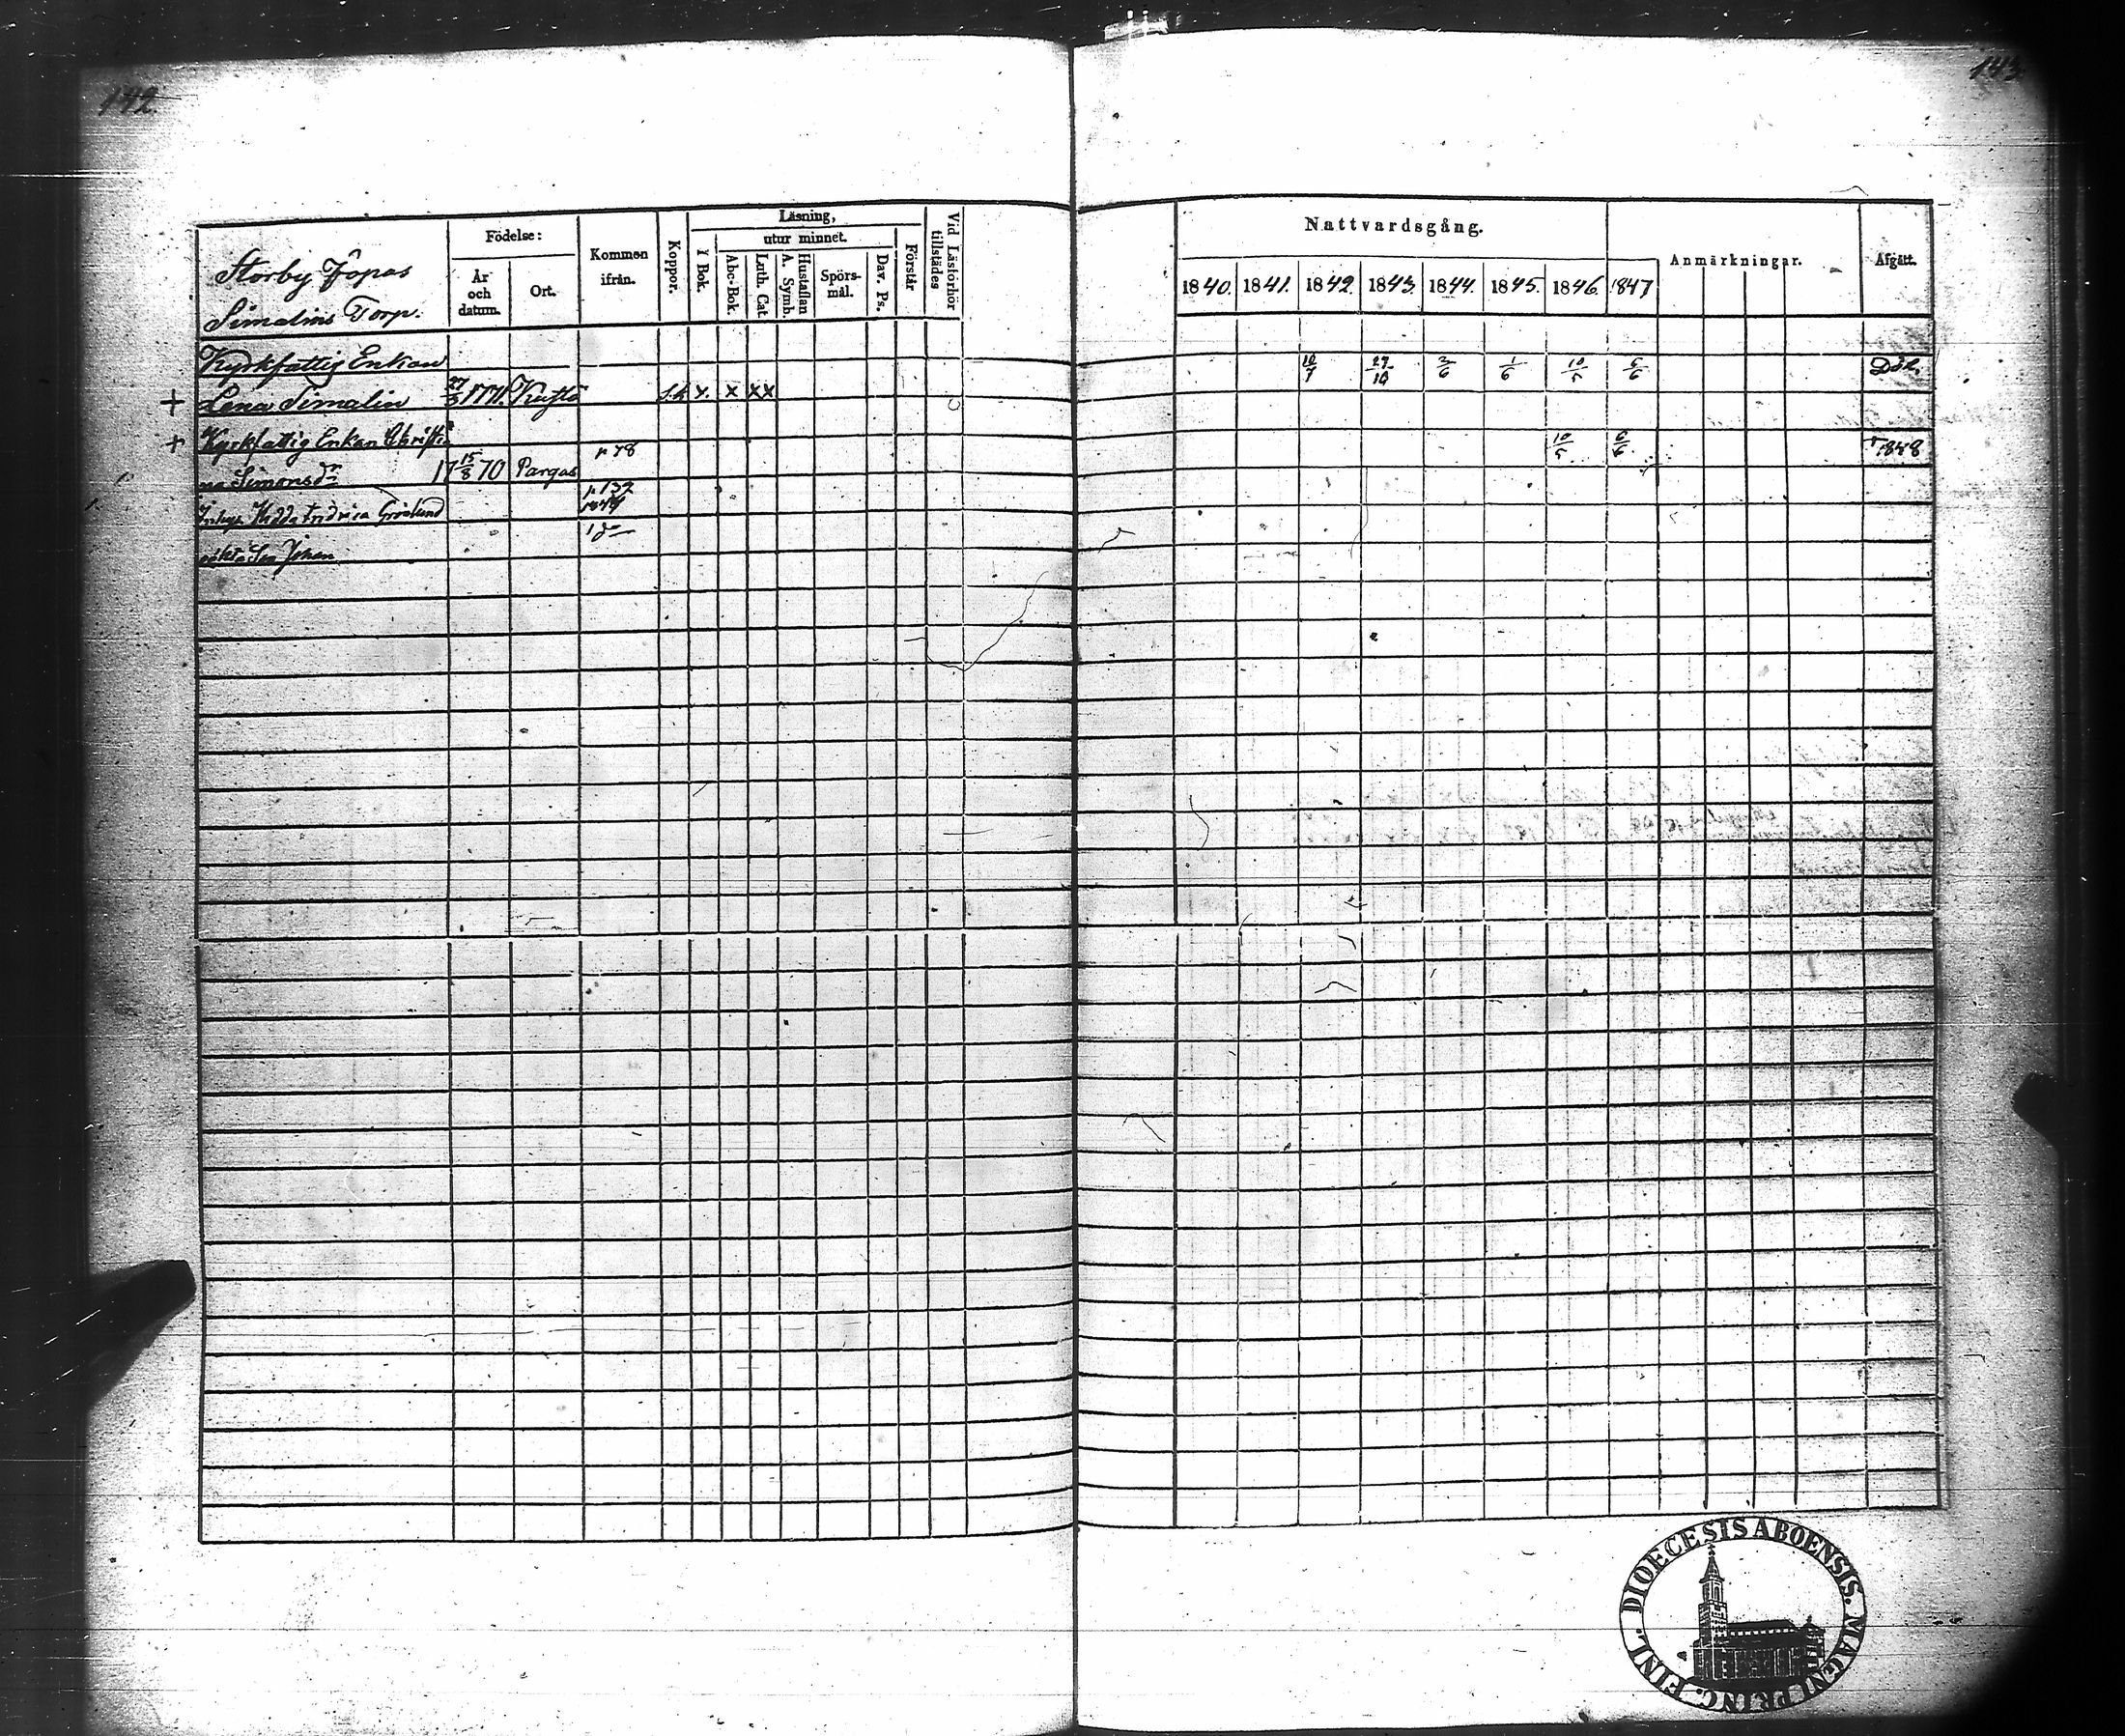 142.
143
Storby Jopas
Simalins Torp.
Födelse:
År och datum.
Ort.
Kommen ifrån.
Koppor.
Läsning,
I Bok.
utur minnet.
Abc-Bok.
Luth. Cat.
Hustaflan A. Symb.
Spörs-mål.
Dav. Ps.
Förstår
Vid Läsförhör tillstädes
Nattvardsgång.
1840. 1841. 1842. 1843. 1844. 1845. 1846. 1847
Anmärkningar.
Afgått.
Kyrkfattig Enkan 10/7 29/10 2/6 1/6 10/5 6/6 Död.
+ Lena Simalin 27/3 1771. Kustö s.k x. x xx
+ Kyrkfattig Enkan Christi p 78 10/5 6/6 + 1848
na Simonsdr 17 15/8 70 Pargas
p 132
Inhys Hedda Fredrica Grönlund 1844
oäkta Son Johan
DIOECESIS ABOENSIS. MAGNI PRINC. FINL.